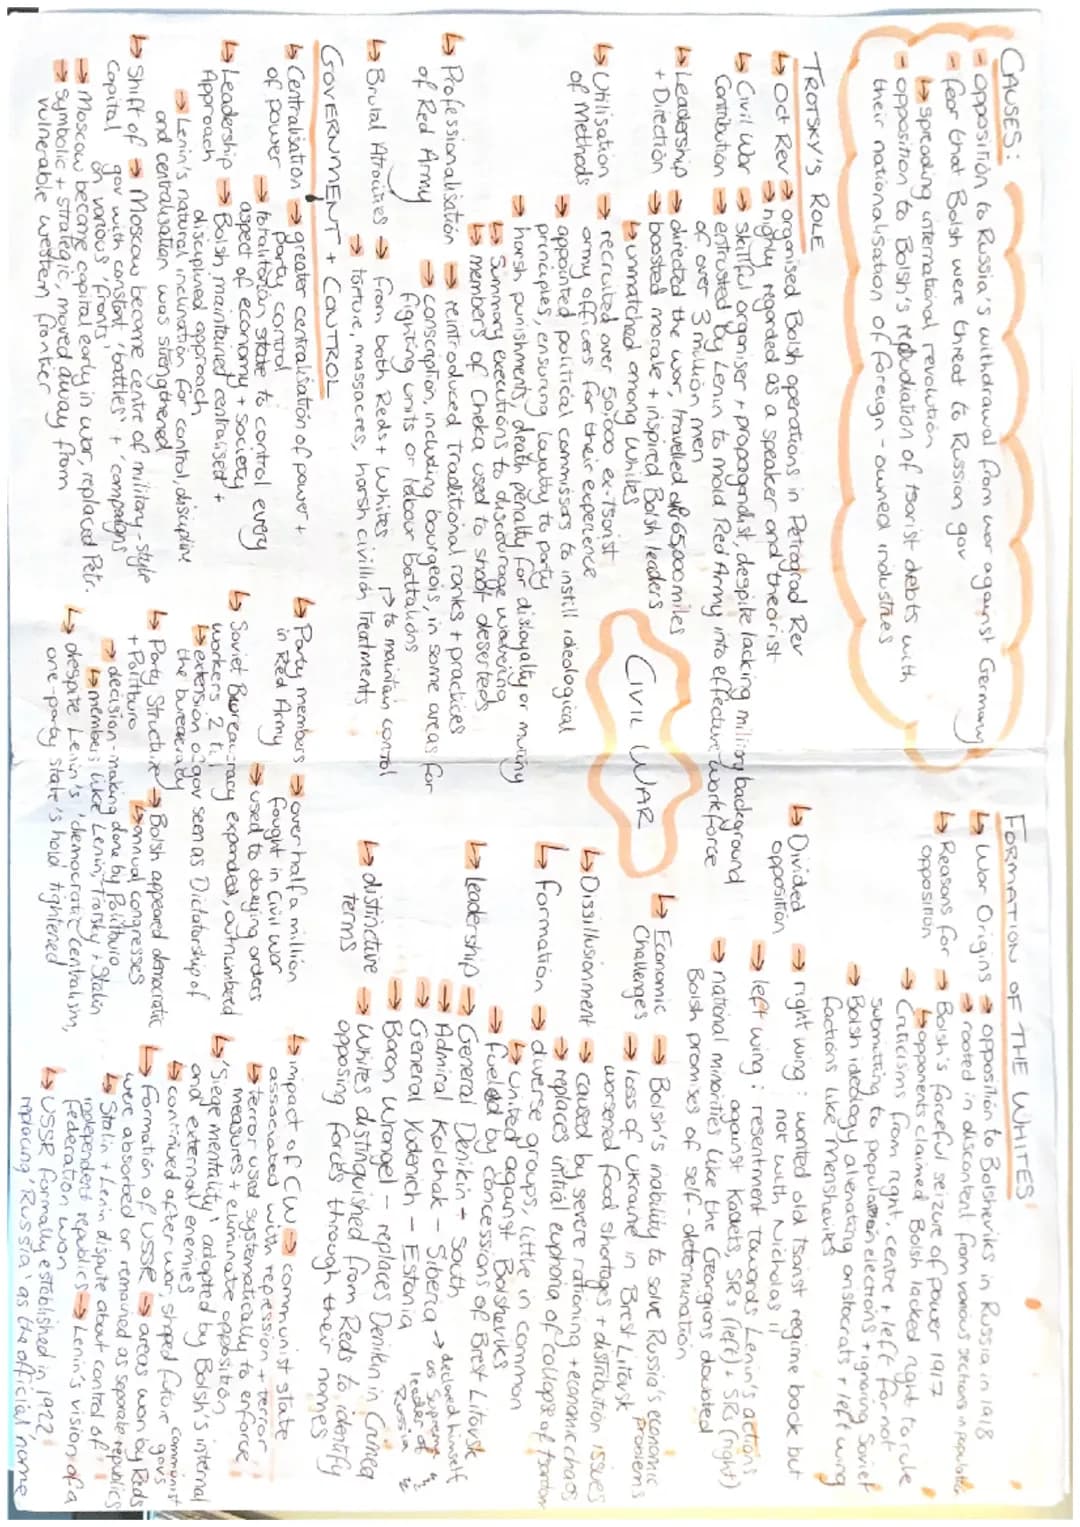 CIVIL WAR
CAUSES:
- opposition to Russia's withdrawal from war against Germany
- fear that Bolsh were threat to Russian gov
↳ spreading international revolution
- opposition to Bolsh's repudiation of tsarist debts with
their nationalisation of foreign-owned industries
TROTSKY'S ROLE
↳ Oct Rev → organised Bolsh operations in Petrograd Rev
→ highly regarded as a speaker and theorist
↳ Civil War → skillful organiser + propagandist, despite lacking military background
Contribution → entrusted by Lenin to mold Red Army into effective workforce
of over 3 million men
↳ Leadership → directed the war, travelled 65,000 miles
+ Direction → boosted morale + inspired Bolsh leaders
↳ unmatched among whites
↳ Utilisation → recruited over 50,000 ex-Tsarist
of Methods army officers for their experience
→ appointed political commissars to instill ideological
principles, ensuring loyalty to party
→ harsh punishments, death penalty for disloyalty or mutiny
↳ summary executions to discourage wavering
↳ members of Cheka used to shoot deserters
↳ Professionalisation → reintroduced traditional ranks + practices
of Red Army → conscription, including bourgeois, in some areas for
fighting units or labour battalions
↳ Brutal Atrocities → from both Reds + Whites → to maintain control
→ torture, massacres, harsh civillian treatments
GOVERNMENT + CONTROL
↳ Centralisation → greater centralisation of power +
of power party control
→ totalitarian state to control every
aspect of economy + society
↳ Leadership → Bolsh maintained centralised +
Approach disciplined approach
→ Lenin's natural inclination for control, discipline
and centralisation was strengthened
↳ Shift of → Moscow become centre of military-style
Capital gov with constant 'battles' + 'campaigns'
on various 'fronts'
→ Moscow become capital early in war, replaced Petr.
→ symbolic + strategic, moved away from
vulnerable western frontier
↳ Party members → over half a million
in Red Army fought in Civil War
→ used to obeying orders
↳ Soviet Beureacracy expanded, outnumbered
workers 2 til
↳ extension of gov seen as Dictatorship of
the bureaucracy
↳ Party Structure → Bolsh appeared democratic
+ Politburo ↳ annual congresses
→ decision-making done by Politburo
↳ members like Lenin, Trotsky + Stalin
↳ despite Lenin's 'democratic centralism,
one-party state's hold tightened
FORMATION OF THE WHITES
↳ War Origins → opposition to Bolsheviks in Russia in 1918
→ rooted in discontent from various sections in population
↳ Reasons for → Bolsh's forceful seizure of power 1917
opposition ↳ opponents claimed Bolsh lacked right to rule
→ Criticisms from right, centre + left for not
submitting to popular elections + ignoring Soviet
→ Bolsh ideology alienating aristocrats + left wing
factions like Mensheviks
↳ Divided → right wing: wanted old tsarist regime back but
opposition not with Nicholas II
→ left wing: resentment towards Lenin's actions
against Kadets, SRs (left) + SRs (right)
→ national minorities like the Georgians doubted
Bolsh promises of self-determination
↳ Economic → Bolsh's inability to solve Russia's economic
Challenges problems
→ loss of Ukraine in Brest Litovsk
worsened food shortages + distribution issues
↳ Dissillusionment → caused by severe rationing + economic chaos
→ replaces initial euphoria of collapse of tsardom
↳ Formation → diverse groups, little in common
↳ united against Bolsheviks
→ fueled by concessions of Brest Litovsk
↳ leadership → General Denikin - South
→ Admiral Kolchak - Siberia → declared himself
as supreme
leader of
Russia
→ General Yudenich - Estonia
→ Baron Wrangel - replaces Denikin in Crimea
↳ distinctive → Whites distinguished from Reds to identify
terms opposing forces through their names
↳ impact of CW → communist state
associated with repression + terror
↳ terror used systematically to enforce
measures + eliminate opposition
↳ 'Siege mentality' adopted by Bolsh's internal
and external enemies
↳ continued after war, shaped future communist
govs
↳ Formation of USSR → areas won by Reds
were absorbed or remained as separate republics
↳ Stalin + Lenin dispute about control of
independent republics → Lenin's vision of a
federation won
↳ USSR formally established in 1922,
replacing 'Russia' as the official name